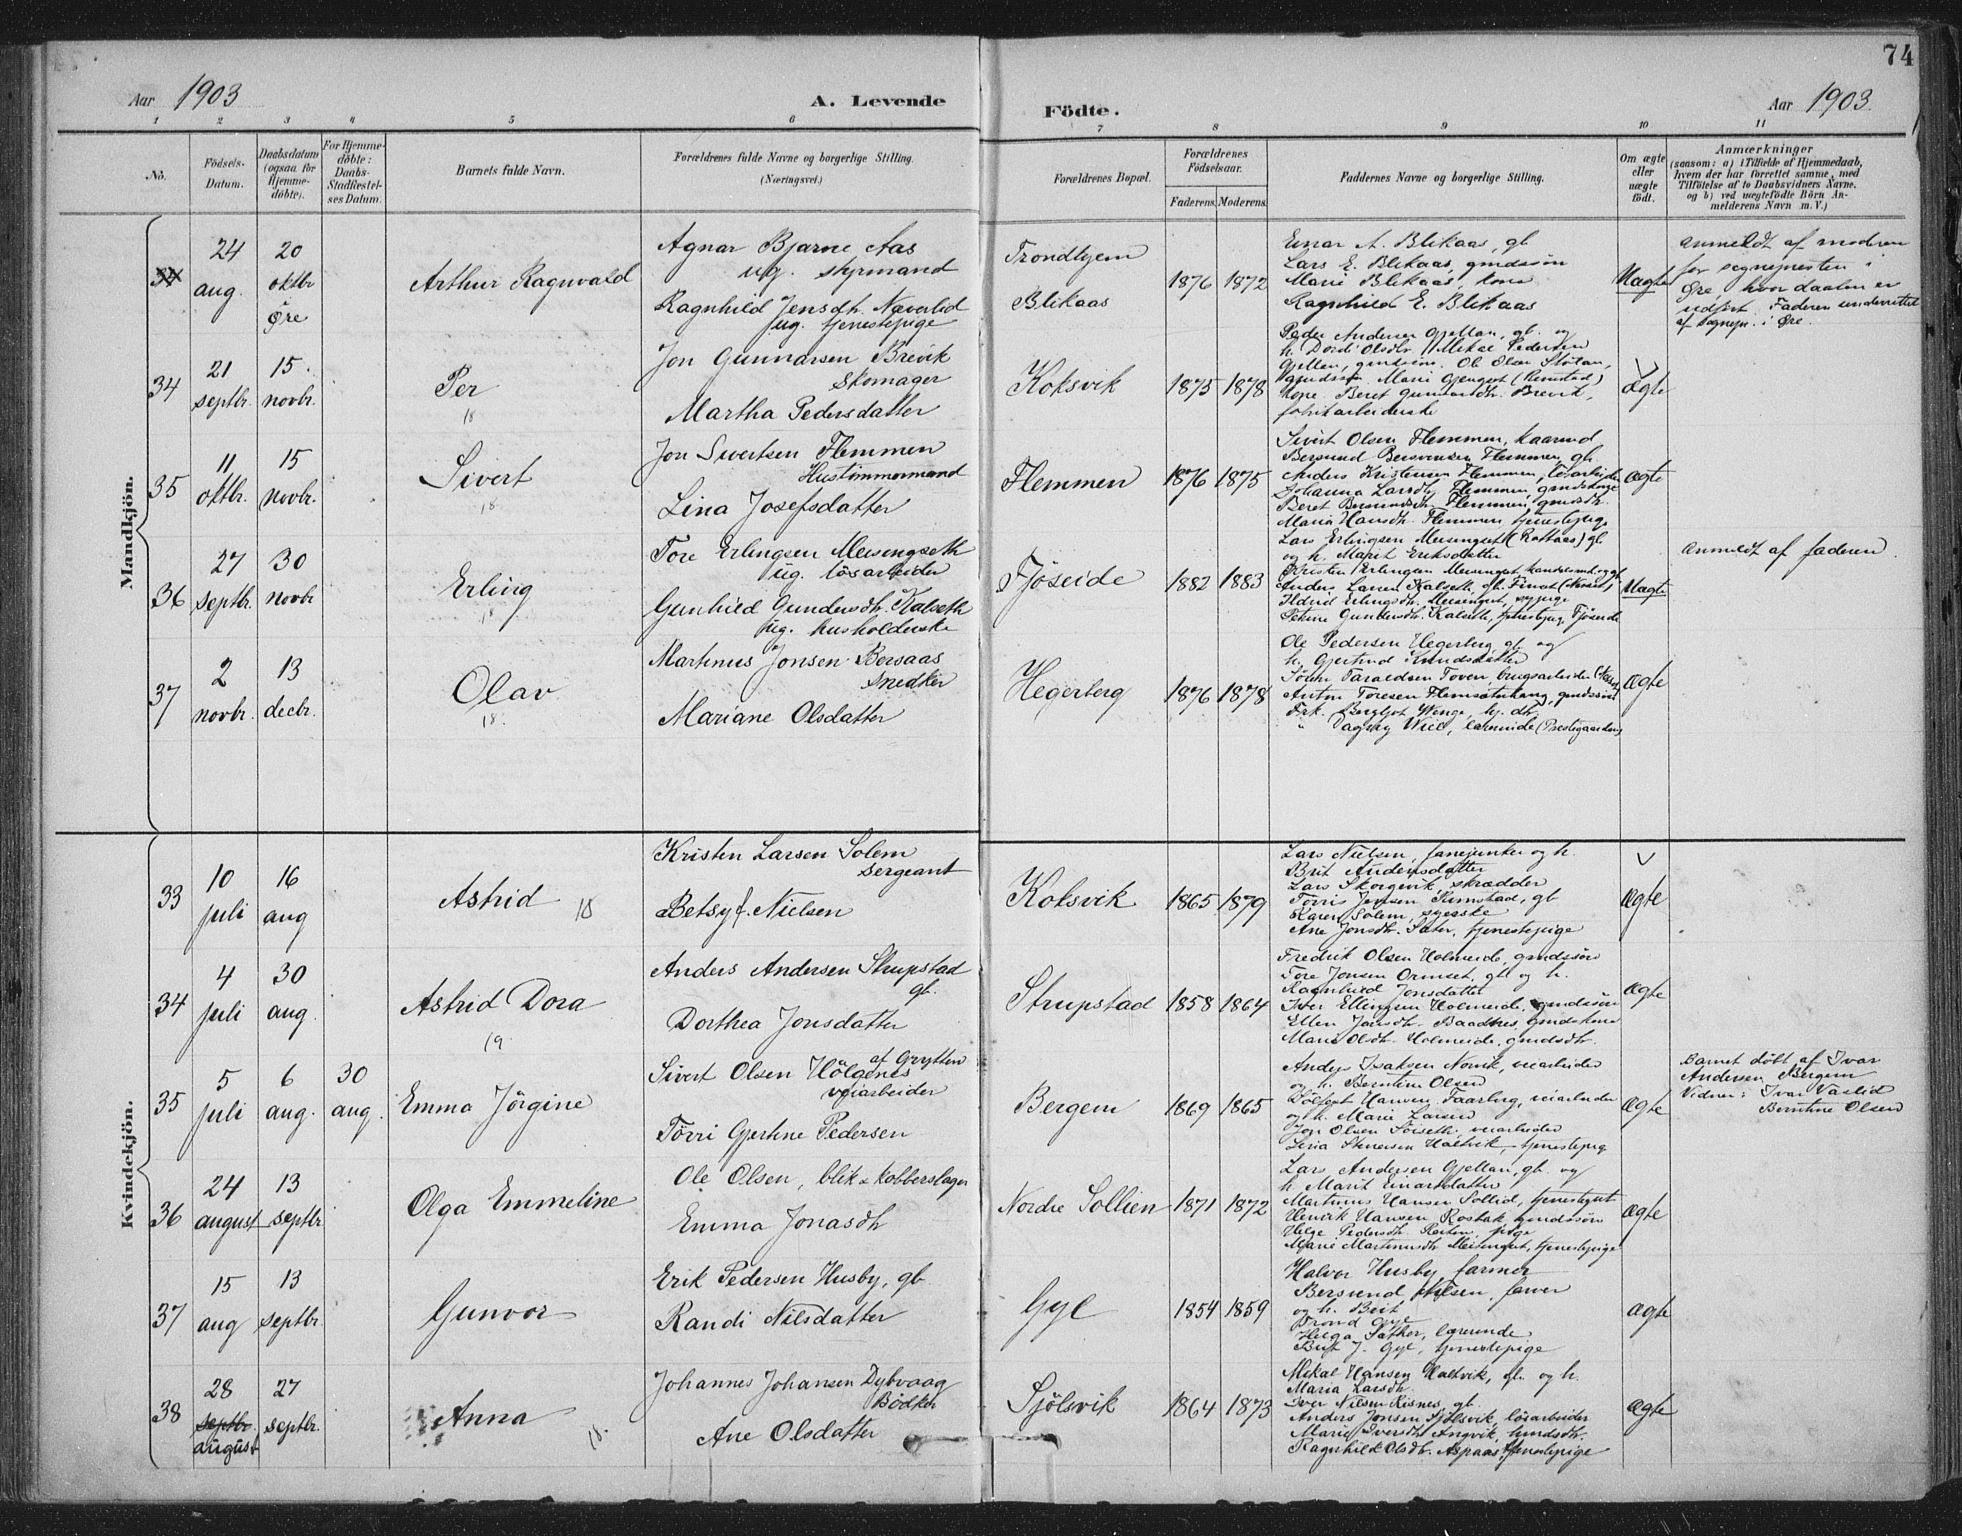 74
Aar 1903
A. Levende
Födte.
Aar 1903
1 2 3 4 5 6 7 8 9 10 11
No.
Födsels-
Datum.
Daabsdatum
(ogsaa for
Hjemme-
döbte).
For Hjemme-
döbte:
Daabs-
Stadfæstel-
ses Datum.
Barnets fulde Navn.
Forældrenes fulde Navne og borgerlige Stilling.
(Næringsvei.)
Forældrenes Bopæl.
Forældrenes
Födselsaar.
Faderens. Moderens.
Faddernes Navne og borgerlige Stilling.
Om ægte
eller
uægte
födt.
Anmærkninger
(saasom: a) i Tilfælde af Hjemmedaab,
hvem der har forrettet samme, med
Tilföielse af to Daabsvidners Navne,
og b) ved uægtefödte Börn An-
melderens Navn m. V.)
Mandkjön.
34
24
aug.
20
oktbr
Øre
Arthur Ragnvald
Agnar Bjarne Aas
ug. styrmand
Ragnhild Jensdtr. Næverlid
ug. tjenestepige
Trondhjem
Blikaas
1876 1872
Einar A. Blikaas, gb
Lars E. Blikaas, gmdssön
Marit Blikaas, kone
Ragnhild E. Blikaas
Uægte
anmeldt af moderen
for sognepresten i
Øre, hvor daaben er
udfört. Faderen underrettet
af sognepr. i Øre.
34
21
septbr.
15.
novbr.
Per
18
Jon Gunnarsen Brevik
Skomager
Martha Pedersdatter
Koksvik
1875 1878
Peder Andersen Gjellan, gb. og
h. Dordi Olsdtr. Mikal Pedersen
Gjellan, gmdssön. Ole Olsen
gmdssön. Marie Gjengset (Rimstad)
kone. Beret Gunnarsdtr. Brevik,
fabrikarbeiderske
Ægte
35
11
oktbr.
15
novbr.
Sivert
18.
Jon Sivertsen Flemmen
Hustömmermand
Lina Josefsdatter
Flemmen
1876 1875
Sivert Olsen Flemmen, kaarmd
Bersvend Bersvensen Flemmen, gb.
Anders Kristensen Flemmen, lösarbeider
Johanna Larsdtr. Flemmen, gmdskone
Beret Flemmen, gmdsdtr.
Maria Hansdtr. Flemmen tjenestepige
Ægte
36
27
septbr.
30
novbr
Erling
18
Tore Erlingsen Meisingseth
ug. lösarbeider
Gunhild Gundersdtr. Kalseth
ug. husholderske
Fjöseide
1882 1883
Lars Erlingsen Meisingset (Roltaas) gb
og h. Marit Eriksdatter
Kristen Erlingsen Meisingset, handelsmd. og gb
Anders Larsen Kalseth, gb.
Ildrid Erlingsdtr. Meisingset, sypige
Petrine Gundersdtr. Kalseth, tjenestepige, Fjöseide
Uægte
Anmeldt af faderen.
37
2
novbr.
13
decbr.
Olav
18.
Martinus Jonsen Bersaas
Snedker
Mariane Olsdatter
Hegerberg
1876 1878
Ole Pedersen Hegerberg gb. og
h. Gjertrud Knudsdatter
Taraldsen Toven, brugsarbeider
Anton Toresen Flemsæterhaug, gmdssön
Frk. Bergljot Wenge, hj. dtr.
" Dagny Wiel, lærerinde (Prestegaarden)
Ægte
Kvindekjön.
33
10
juli
16
aug
Astrid
18
Kristen Larsen Solem
Sergeant
Betsy f. Nielsen
Koksvik
1865 1879
Lars Nielsen, fanejunker og h.
Brit Andersdatter
Lars Skorgevik, skrædder
Torris Jensen Rimstad, gb
Karen Solem, syerske
Ane Jonsdtr. Sæter, tjenestepige
Ægte
34
4
juli
30
aug.
Astrid Dora
19.
Anders Andersen Strupstad
gb.
Dorthea Jonsdatter
Strupstad
1858 1864
Fredrik Olsen Holmeide, gmdssön
Tore Jonsen Ormset, gb. og h.
Ragnhild Jonsdatter
Iver Ellingsen Holmeide, gmdssön
Ellen Jonsdtr. Baadnes, gmdskone
Marit Olsdtr. Holmeide, gmdsdtr.
Ægte
35
5
juli
6
aug.
30
aug.
Emma Jörgine
af Grytten
Sivert Olsen Hölgenes
veiarbeider
Torri Gjertine Pedersen
Bergem
1869 1865
Anders Isaksen Norvik, veiarbeider
og h. Berntine Olsen
Hansen Faarberg, veiarbeider
og h. Marie Larsen
Jon Olsen Söiseth, veiarbeider
Lina Stenersen Haltvik, tjenestepige
Ægte
Barnet döbt af Ivar
Andersen Bergem
Vidner: Ivar Vaslid
Berntine Olsen
36
24
august
13
septbr
Olga Emmeline
Ole Olsen, blik & kobberslager
Emma Jonasdtr
Nordre Sollien
1871 1872
Lars Andersen Gjellan, gb. og
h. Marit Einarsdatter
Martinus Hansen Sollid, tjenestegut
Henrik Hansen Rostak, gmdssön
Helge Pedersdtr. pige
Marie Martinusdtr. Meisingset, tjenestepige
Ægte
37
15
aug
13
septbr.
Gunvor
Erik Pedersen Husby, gb
Randi Nilsdatter
Gyl
1854 1859
Halvor Husby farmer
Bersvend Nilsen, farver
og h. Brit
Trond Gyl
Helga Sæther, lærerinde
Brit J. Gyl, tjenestepige
ægte
38
28
septbr.
august
27
septbr.
Anna
18.
Johannes Johansen Dybvaag
Bödker
Ane Olsdatter
Sjölsvik
1864 1873
Mikal Hansen Haltvik, gb. og h.
Maria Larsdtr.
Iver Nilsen Risnes, gb.
Anders Jonsen Sjölsvik, lösarbeider
Marit Iversdtr. Angvik, husmdsdtr.
Ragnhild Olsdtr. Aspaas, tjenestepige
Ægte